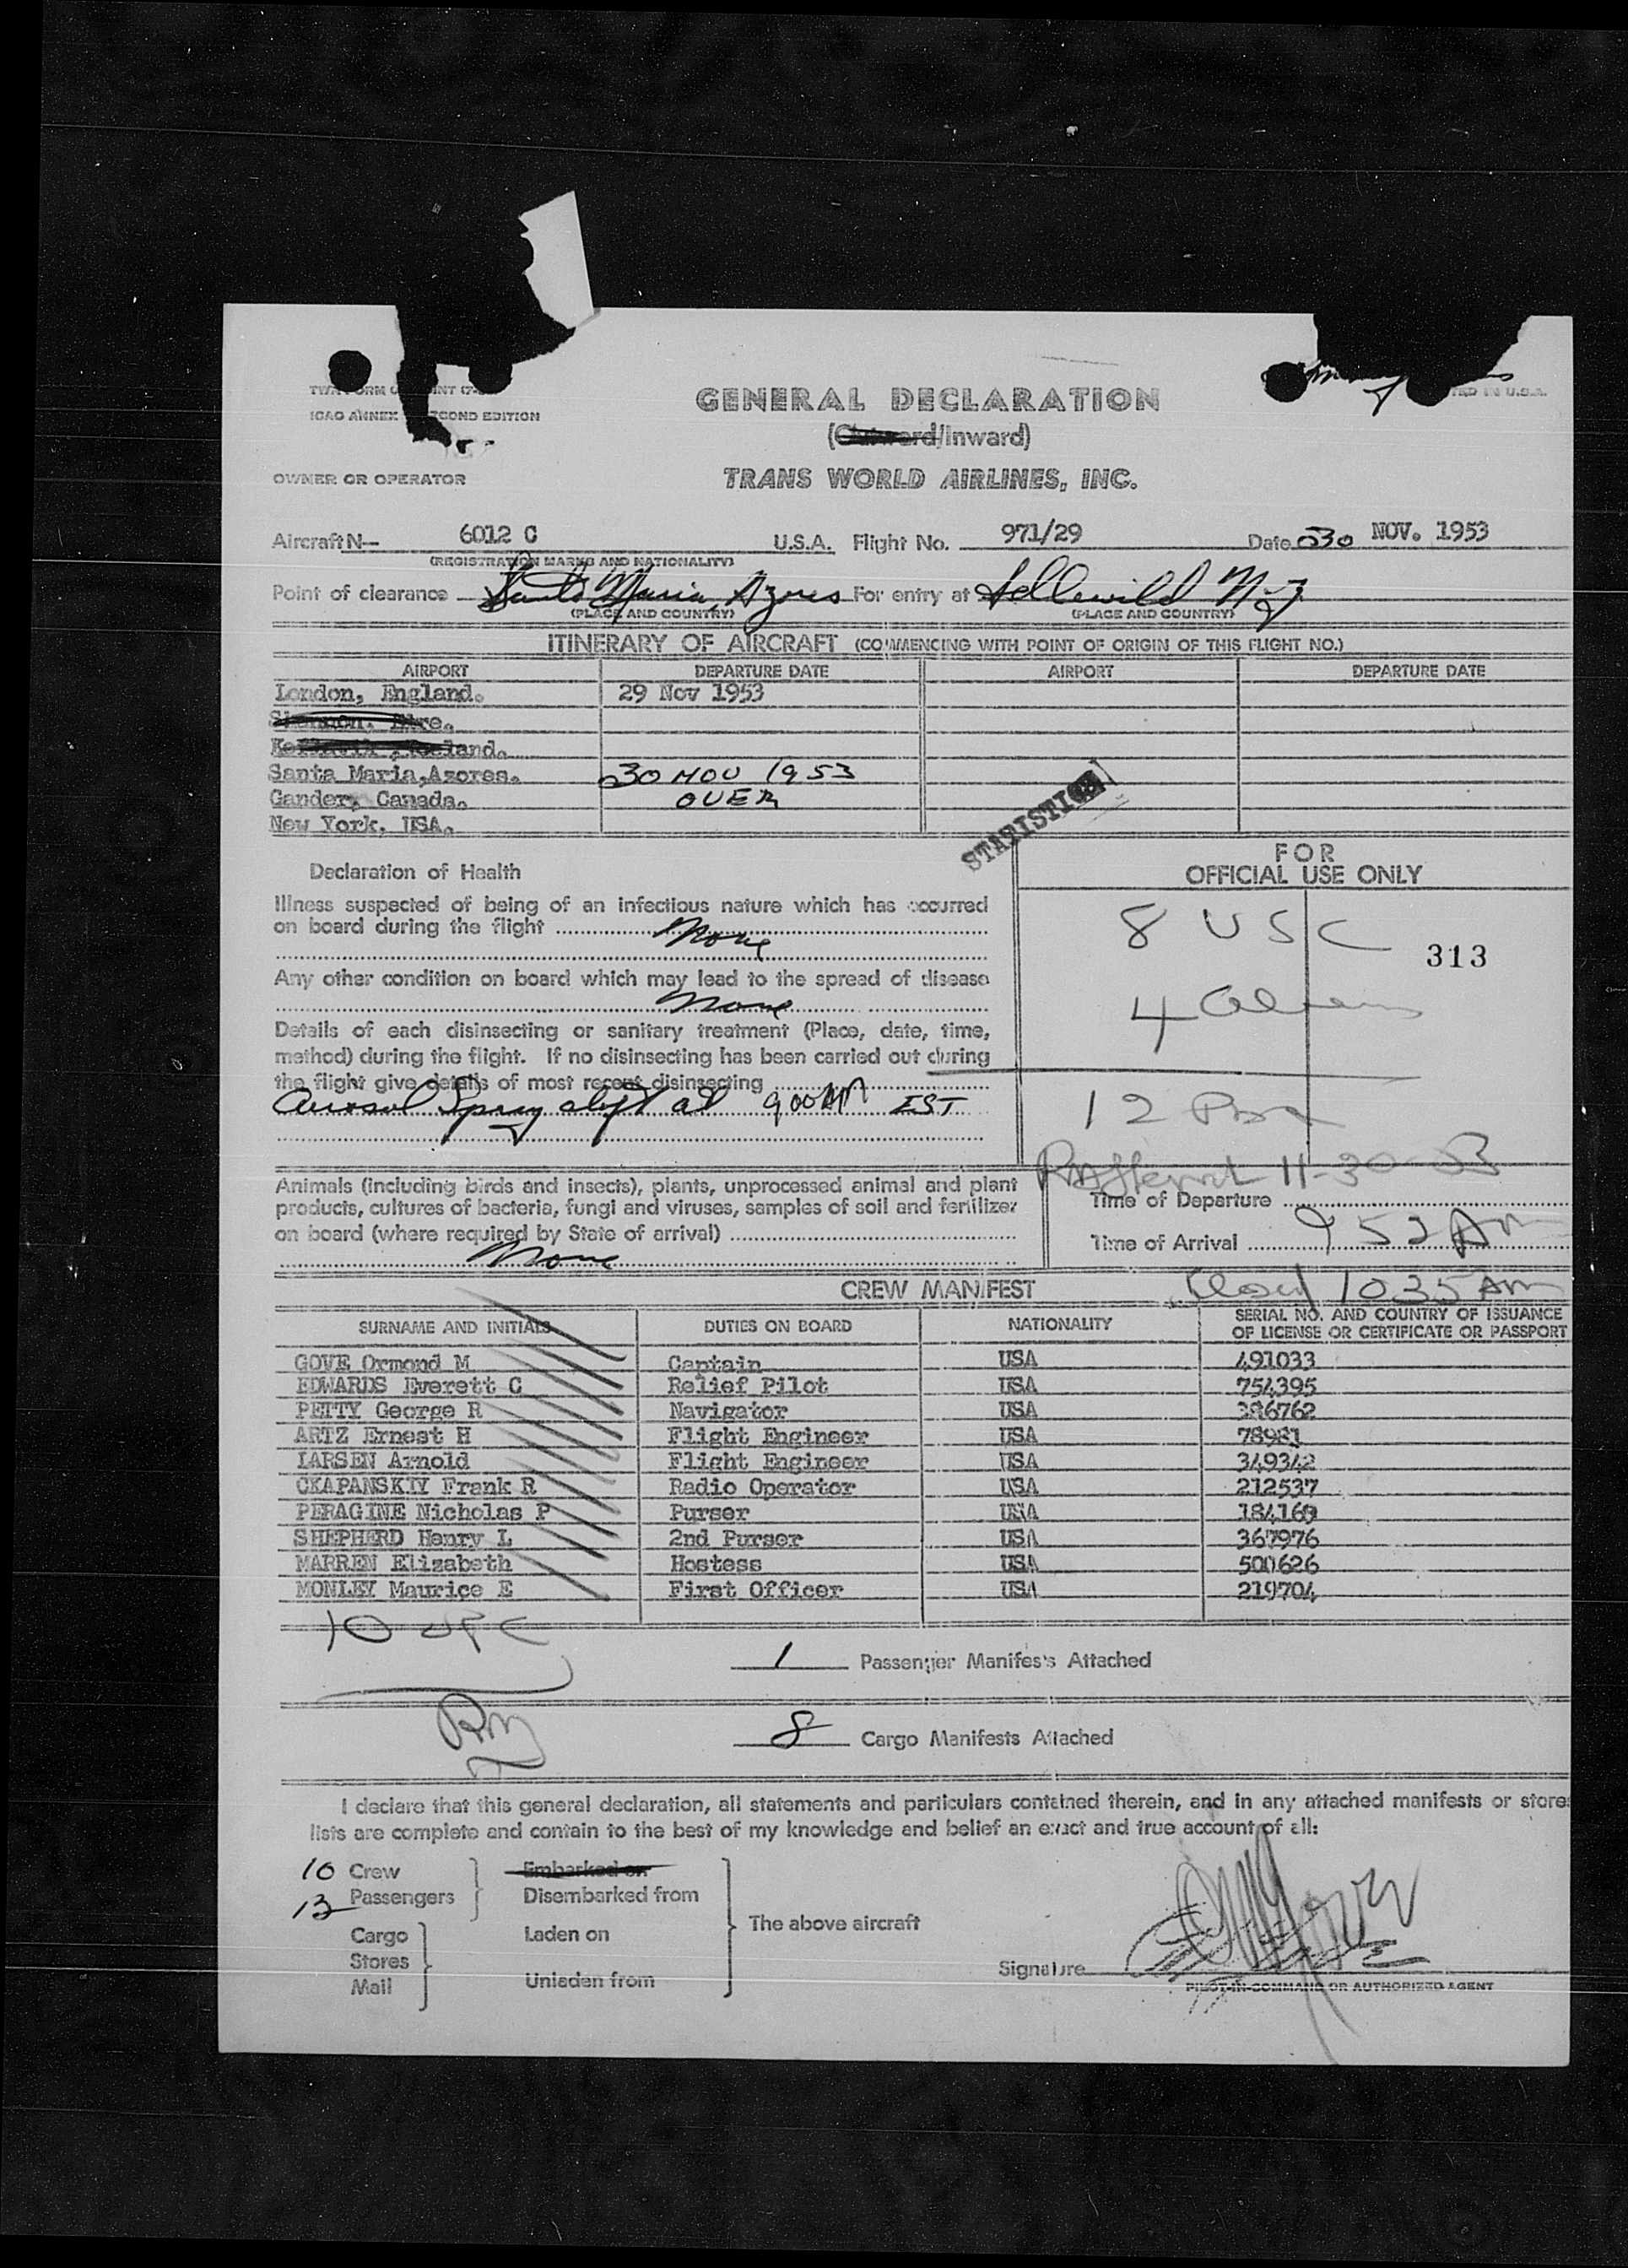 GENERAL DECLARATION
(Outward/Inward)
ICAO ANNEX SECOND EDITION
OWNER OR OPERATOR
TRANS WORLD AIRLINES, INC.
Aircraft N— 6012 C U.S.A. Flight No. 971/29 Date 30 NOV. 1953
(REGISTRATION MARKS AND NATIONALITY)
Point of clearance Santa Maria, Azores For entry at Idlewild N.Y
(PLACE AND COUNTRY) (PLACE AND COUNTRY)
ITINERARY OF AIRCRAFT (COMMENCING WITH POINT OF ORIGIN OF THIS FLIGHT NO.)
AIRPORT DEPARTURE DATE AIRPORT DEPARTURE DATE
London, England. 29 Nov 1953
Shannon. Eire.
Keflavik, Iceland.
Santa Maria,Azores. 30 NOV 1953
Gander, Canada. OVER
New York, USA.
STATISTICS
Declaration of Health
Illness suspected of being of an infectious nature which has occurred
on board during the flight None
Any other condition on board which may lead to the spread of disease
None
Details of each disinsecting or sanitary treatment (Place, date, time,
method) during the flight. If no disinsecting has been carried out during
the flight give details of most recent disinsecting
Aerosol Spray at 900 AM EST
FOR
OFFICIAL USE ONLY
8 USC
313
4 Aliens
12 Pax
11-30-53
Animals (including birds and insects), plants, unprocessed animal and plant
products, cultures of bacteria, fungi and viruses, samples of soil and fertilizer
on board (where required by State of arrival)
None
Time of Departure
Time of Arrival 9 52 AM
1035 AM
CREW MANIFEST
SURNAME AND INITIALS DUTIES ON BOARD NATIONALITY SERIAL NO. AND COUNTRY OF ISSUANCE OF LICENSE OR CERTIFICATE OR PASSPORT
GOVE Ormond M Captain USA 491033
EDWARDS Everett C Relief Pilot USA 754395
PETTY George R Navigator USA 386762
ARTZ Ernest H Flight Engineer USA 78981
LARSEN Arnold Flight Engineer USA 349342
CKAPANSKIY Frank R Radio Operator USA 212537
PERAGINE Nicholas P Purser USA 184169
SHEPHERD Henry L 2nd Purser USA 367976
MARREN Elizabeth Hostess USA 500626
MONLEY Maurice E First Officer USA 219704
10 USC
1 Passenger Manifests Attached
8 Cargo Manifests Attached
I declare that this general declaration, all statements and particulars contained therein, and in any attached manifests or stores
lists are complete and contain to the best of my knowledge and belief an exact and true account of all:
10 Crew
12 Passengers
Embarked on
Disembarked from
Cargo
Stores
Mail
Laden on
Unladen from
The above aircraft
Signature
PILOT-IN-COMMAND OR AUTHORIZED AGENT